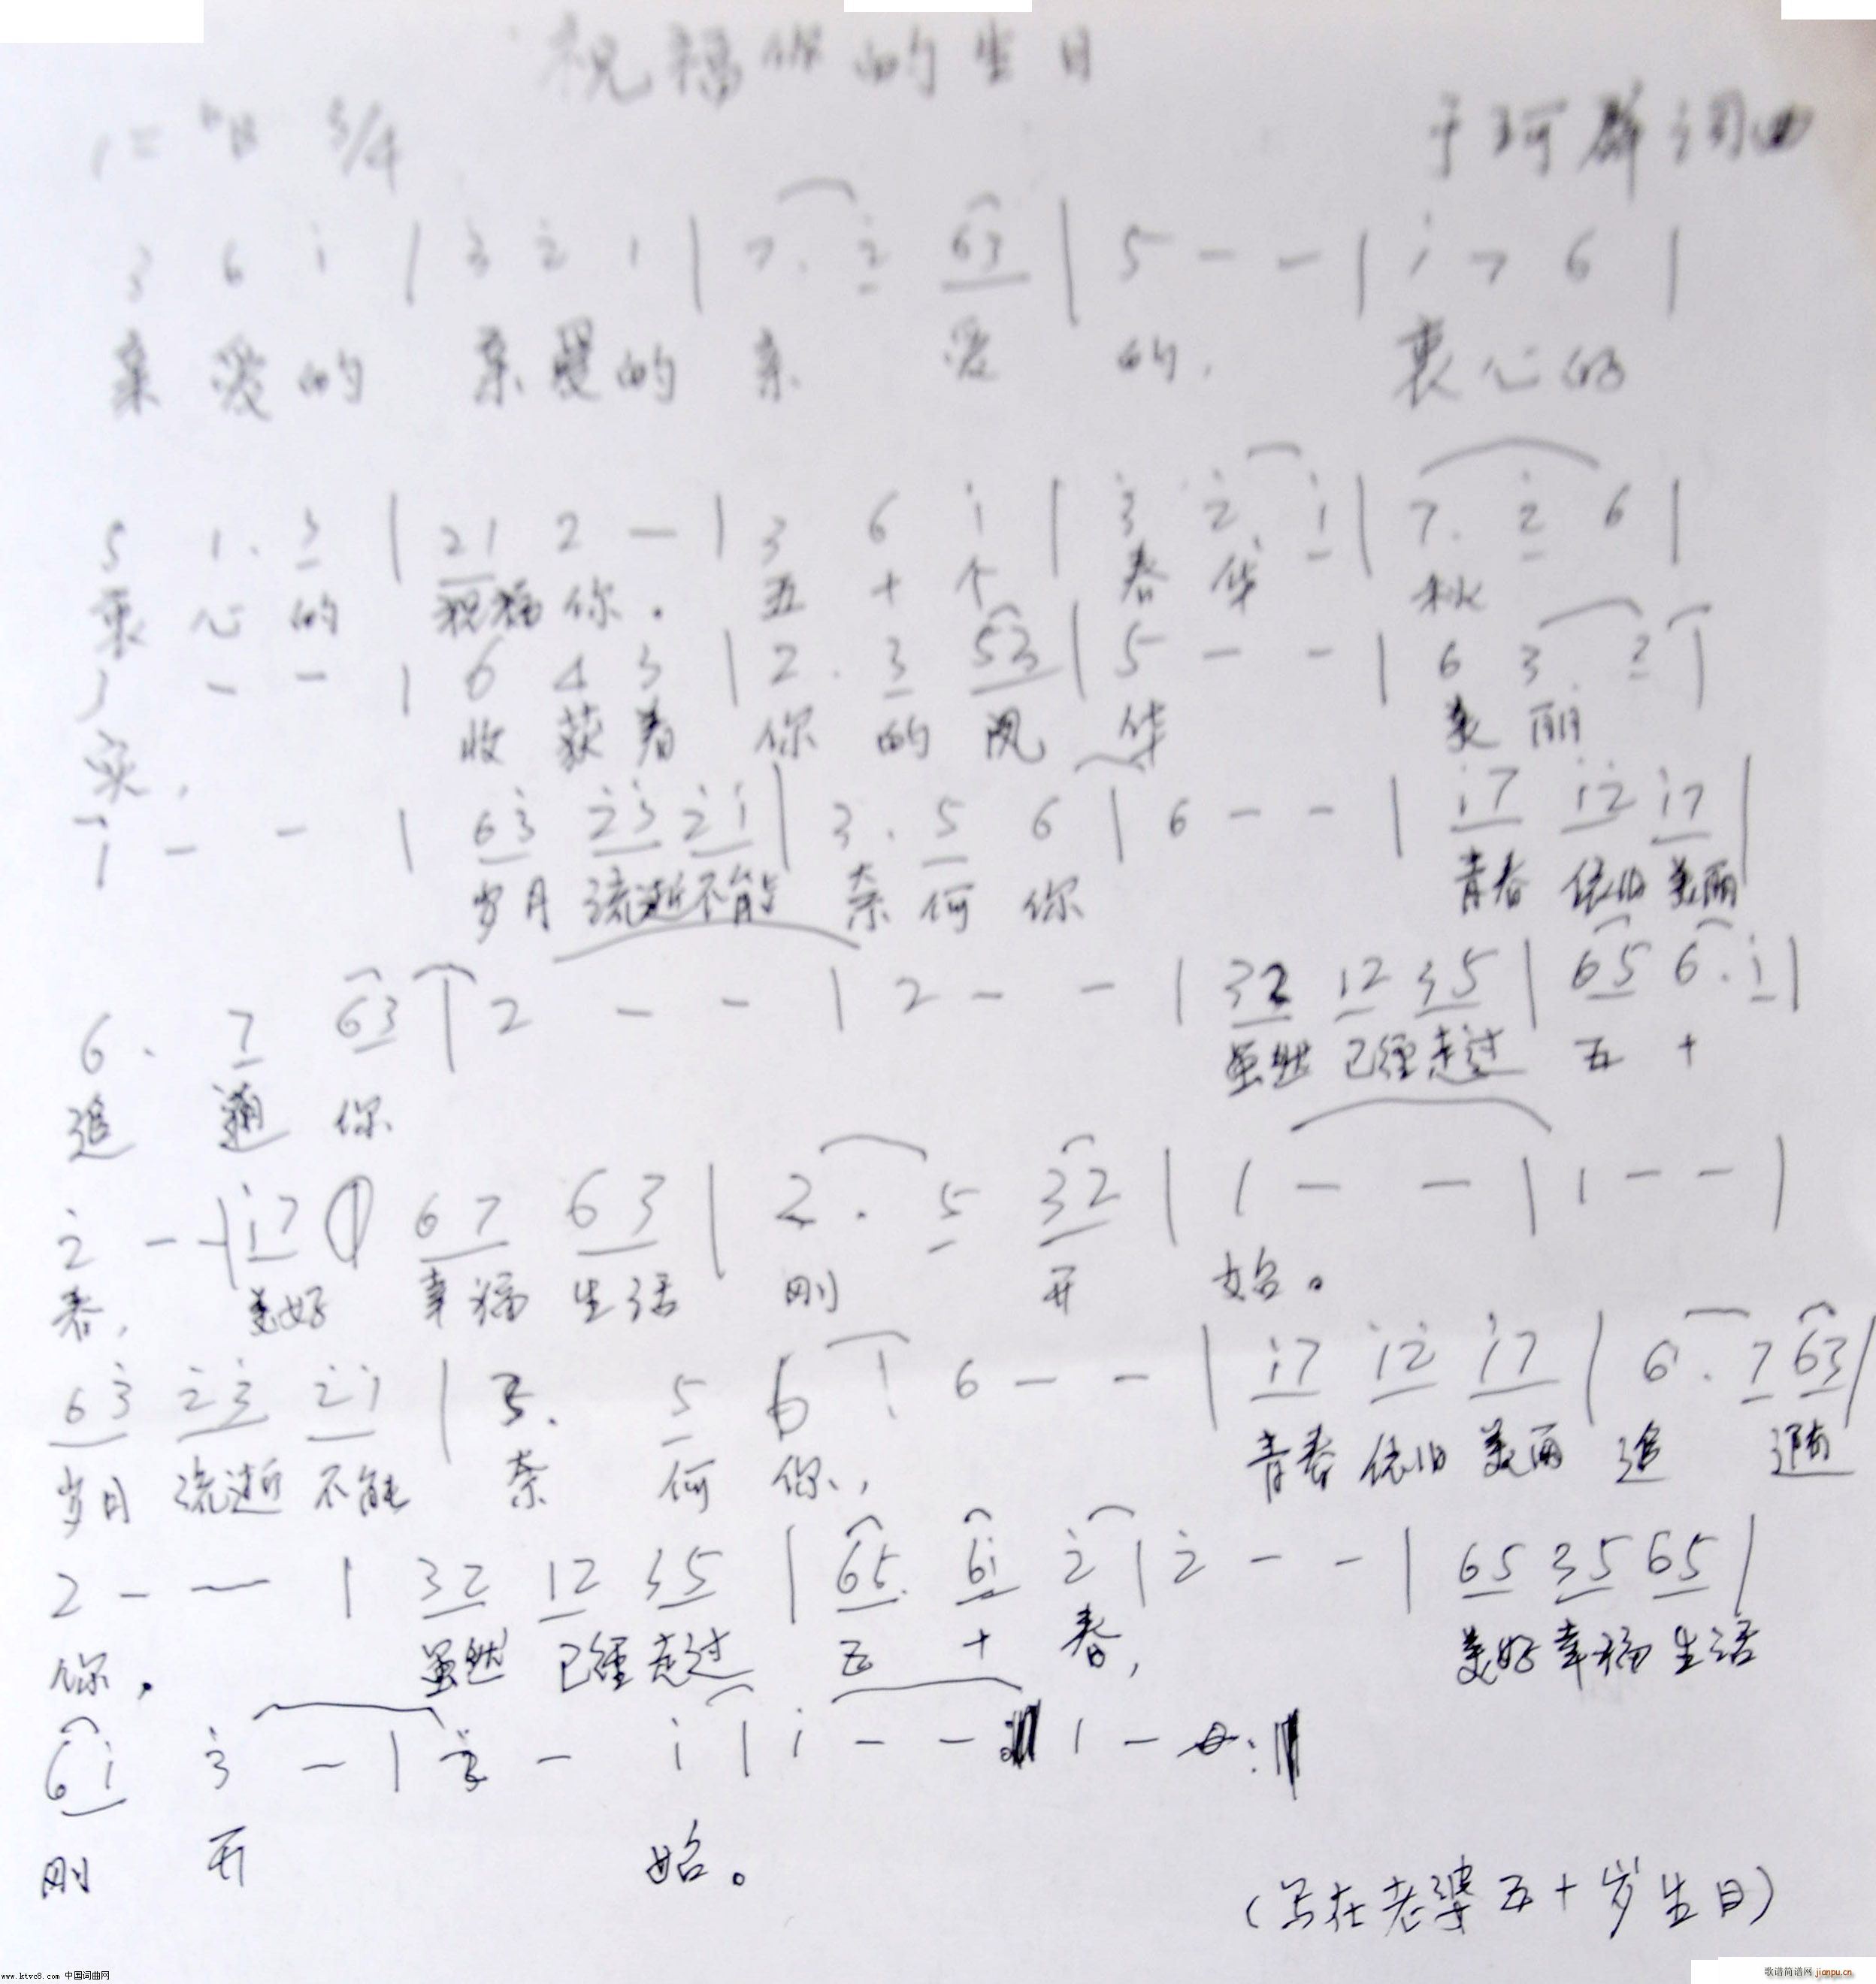 祝福你的生日
1=ᵇB 3/4 于珂群词曲
3 6 i | 3̇ 2̇ 1 | 7. 2̇ 63 | 5 - - | i 7 6 |
亲爱的 亲爱的 亲 爱 的. 衷心的
5 1. 3 | 21 2 - | 3 6 i | 3̇ 2̇. i | 7. 2̇ 6 |
衷心的 祝福你。 五十个 春华 秋
3 - - | 6 4 3 | 2. 3 53 | 5 - - | 6 3. 2 |
实, 收获着 你的风 华 美丽
1 - - | 63̇ 2̇3̇ 2̇i | 3. 5 6 | 6 - - | i7 i2̇ i7 |
岁月 流逝不能 奈何你 青春 依旧 美丽
6. 7 63 | 2 - - | 2 - - | 32 12 35 | 65 6. i |
追随你 虽然 已经走过 五十
2̇ - - | i7 67 63 | 2. 5 32 | 1 - - | 1 - - |
春, 美好 幸福 生活 刚 开 始。
63̇ 2̇3̇ 2̇i | 3. 5 6 | 6 - - | i7 i2̇ i7 | 6. 7 63 |
岁月 流逝 不能 奈 何 你, 青春 依旧 美丽 追 随
2 - - | 32 12 35 | 65 6i 2̇ | 2̇ - - | 65 35 65 |
你, 虽然 已经走过 五 十 春, 美好幸福生活
6i 3̇ - | 2̇ - i | i - - | 1 - :‖
刚 开 始。
(写在老婆五十岁生日)
www.ktvc8.com 中国词曲网
歌谱简谱网 jianpu.cn